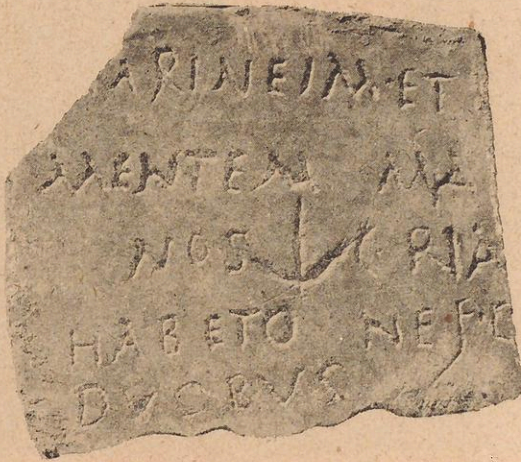 ARINEIM ET
MENTEM MA
NOS CRIA
HABETO NEPE
DVOBVS